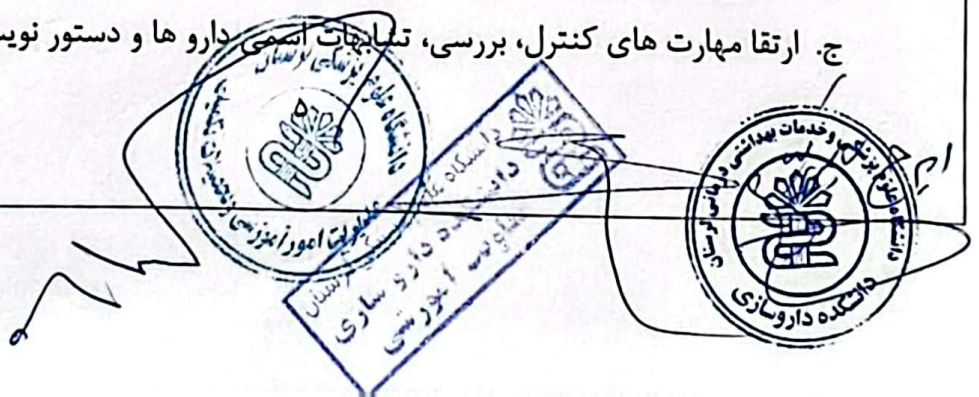 ج. ارتقا مهارت های کنترل، بررسی، تشابهات اسمی دارو ها و دستور نویس
دانشگاه علوم پزشکی لرستان
معاونت امور آموزشی
دانشکده دارو سازی
معاونت آموزشی
دانشگاه علوم پزشکی وخدمات بهداشتی درمانی لرستان
دانشکده داروسازی